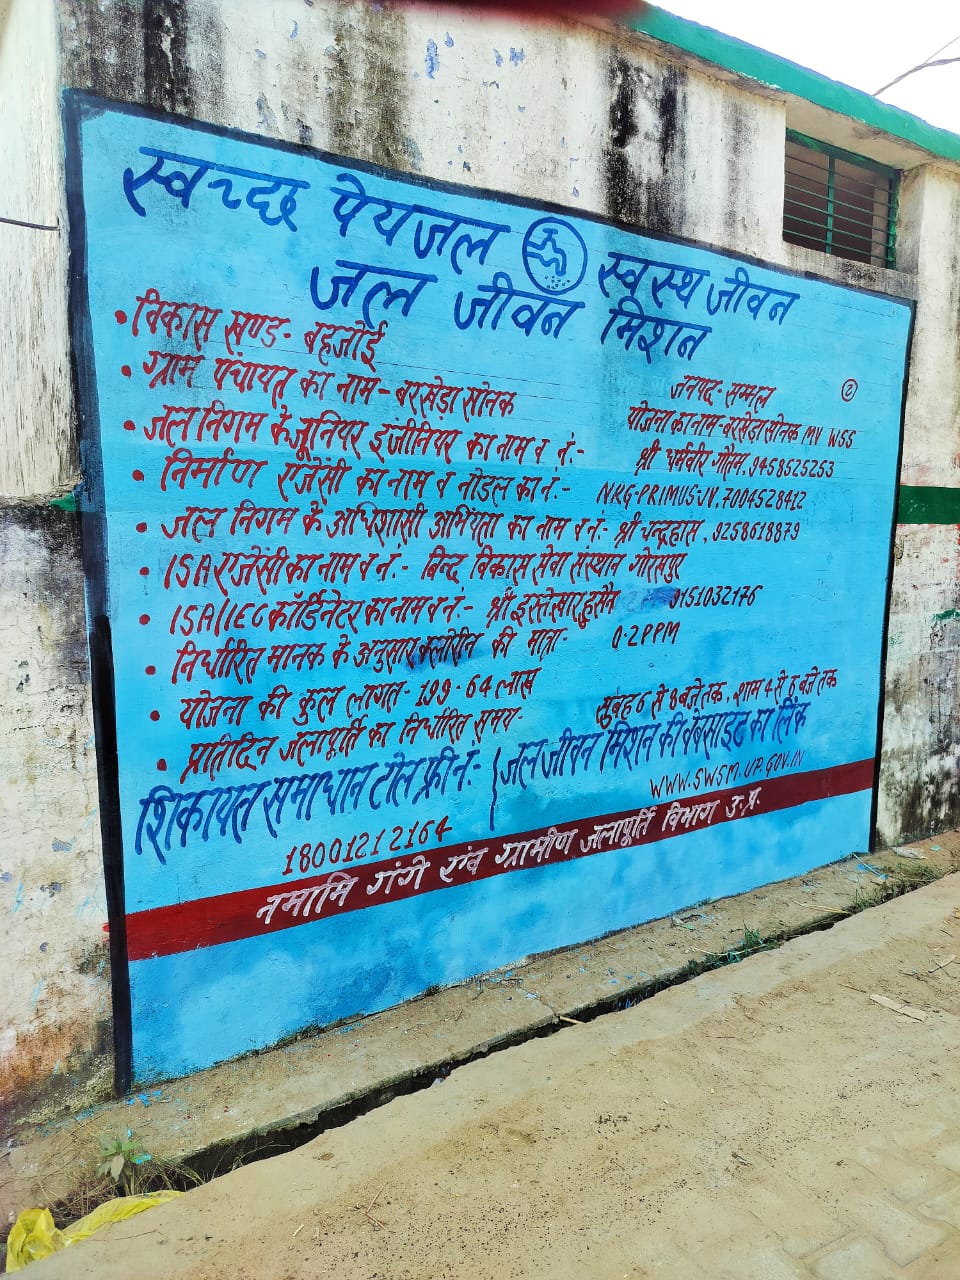 स्वच्छ पेयजल स्वस्थ जीवन
जल जीवन मिशन
• विकास खण्ड - बहजोई
जनपद - सम्भल
②
• ग्राम पंचायत का नाम - बरखेड़ा सोनक
योजना का नाम - बरखेड़ा सोनक MV WSS
• जल निगम के जूनियर इंजीनियर का नाम व नं:- श्री धर्मवीर गौतम, 9458525253
• निर्माण एजेंसी का नाम व नोडल का नं.- NKG-PRIMUS-JV, 7004528412
• जल निगम के अधिशासी अभियंता का नाम व नं:- श्री चन्द्रहास, 9258618879
• ISA एजेंसी का नाम व नं:- बिन्द विकास सेवा संस्थान गोरखपुर
• ISA/IEC कॉर्डिनेटर का नाम व नं:- श्री इस्तेखार हुसैन 9151032176
• निर्धारित मानक के अनुसार क्लोरीन की मात्रा:- 0.2PPM
• योजना की कुल लागत - 199.64 लाख
• प्रतिदिन जलापूर्ति का निर्धारित समय:- सुबह 6 से 8 बजे तक, शाम 4 से 6 बजे तक
शिकायत समाधान टोल फ्री नं:-
18001212164
जल जीवन मिशन की वेबसाइट का लिंक
WWW.SWSM.UP.GOV.IN
नमामि गंगे एंव ग्रामीण जलापूर्ति विभाग उ.प्र.